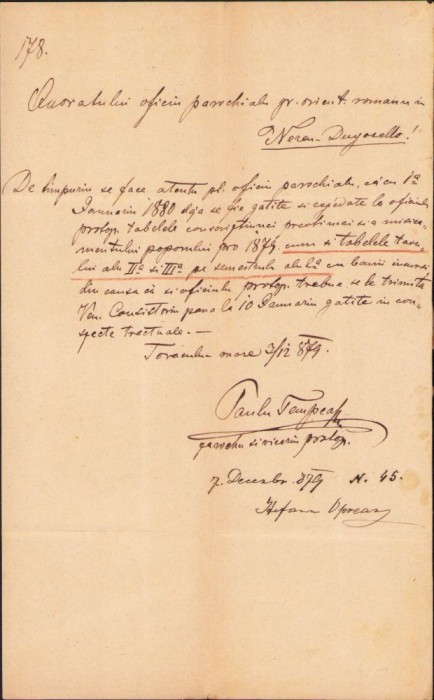 178.
Onoratului oficiu parochialu gr. orient. romanu in
Nereu-Dugosello!
De timpuriu se face atentu pl. oficiu parochialu, că cu 1a
Januariu 1880 deja se fie gatite si espedate la oficiulu
protop. tabelele conscriptiunei preotimei si a misca-
mentului poporului pro 1879 cum si tabelele taxe-
lui alu IIa si IIIa pe semestrulu alu 2a cu banii incursi
din causa că si oficiulu protop. trebue se le trimita
Ven. Consistoriu pana la 10 Januariu gatite in con-
specte tractuale. —
Toraculu mare 3/12 879.
Paulu Tempea
parochu si vicariu protop.
7. Decembr. 879 N. 45.
Stefanu Oprean